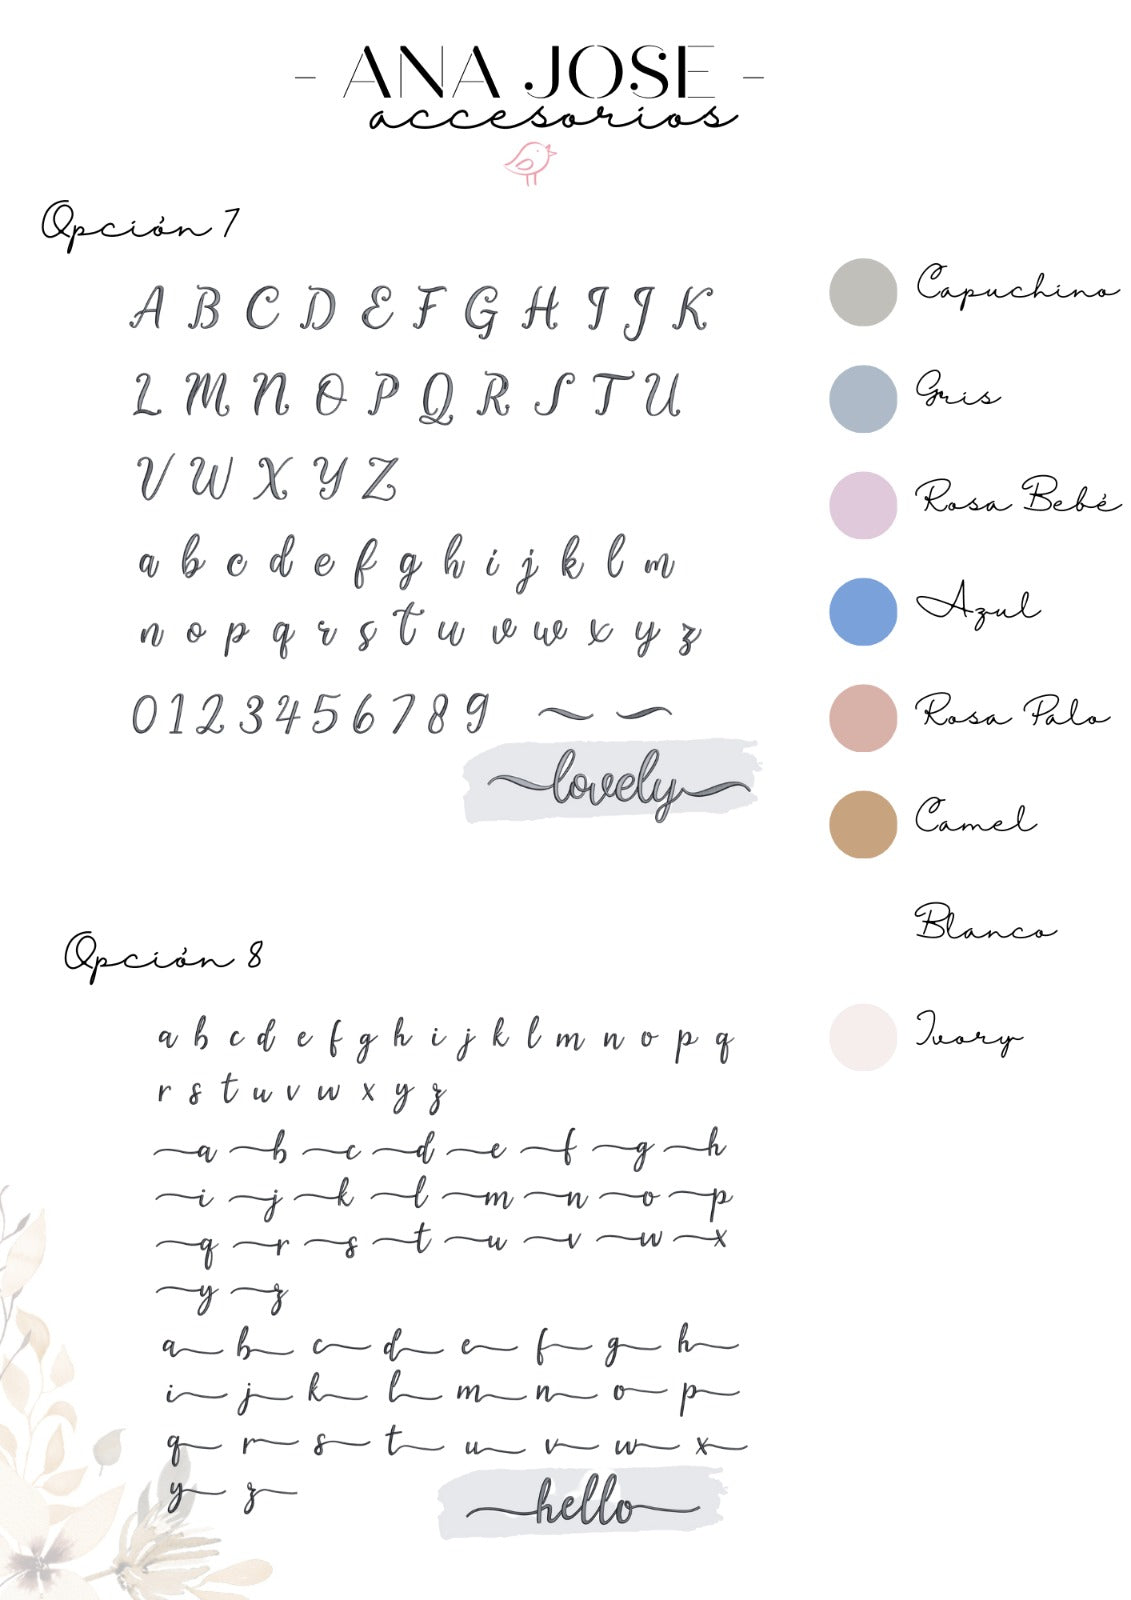 - ANA JOSE -
accesorios
Opción 7
A B C D E F G H I J K
L M N O P Q R S T U
V W X Y Z
a b c d e f g h i j k l m
n o p q r s t u v w x y z
0 1 2 3 4 5 6 7 8 9
lovely
Capuchino
Gris
Rosa Bebé
Azul
Rosa Palo
Camel
Blanco
Ivory
Opción 8
a b c d e f g h i j k l m n o p q
r s t u v w x y z
a b c d e f g h
i j k l m n o p
q r s t u v w x
y z
a b c d e f g h
i j k l m n o p
q r s t u v w x
y z
hello